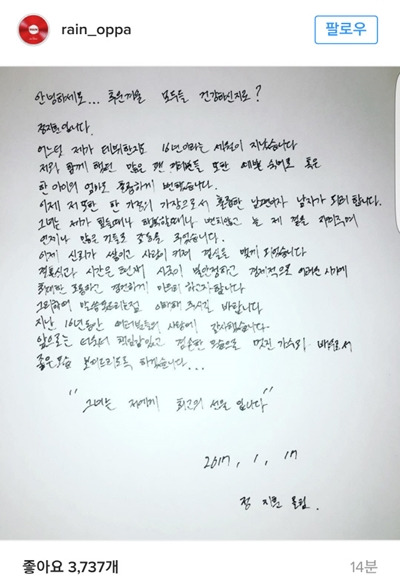 rain_oppa
팔로우
안녕하세요... 추운겨울 모두들 건강하신지요?
정지훈입니다.
어느덧 제가 데뷔한지도 16년이라는 세월이 지났습니다
저와 함께 했던 많은 팬 여러분들 또한 학생 숙녀로 혹은
한 아이의 엄마로 훌륭하게 변했습니다.
이제 저 또한 한 가정의 가장으로서 훌륭한 남편이자 남자가 되려 합니다.
그녀는 제가 힘들때나 행복할때나 변치않고 늘 제 곁을 지켜주며
언제나 많은 것들로 감동을 주었습니다.
이제 신뢰가 쌓이고 사랑이 커져 결실을 맺게 되었습니다
결혼식과 시간은 현재 시국이 불안정하고 경제적으로 어려운 시기에
최대한 조용하고 경건하게 마무리 하고자합니다
그리하여 말씀못드리는점 이해해 주시길 바랍니다
지난 16년동안 여러분들의 사랑에 감사했습니다
앞으로는 더욱더 책임감있고 겸손한 모습으로 멋진 가수와 배우로서
좋은모습 보여드리도록 하겠습니다...
"그녀는 저에게 최고의 선물 입니다"
2017, 1, 17
정지훈 올림.
좋아요 3,737개
14분